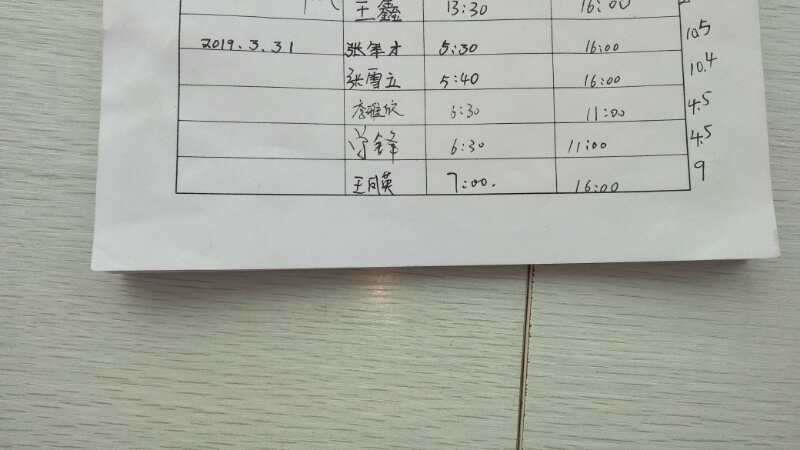 王鑫 13:30 16:00
2019.3.31 张军才 5:30 16:00 10.5
张雪立 5:40 16:00 10.4
李雅欣 6:30 11:00 4.5
锋 6:30 11:00 4.5
王同英 7:00. 16:00 9